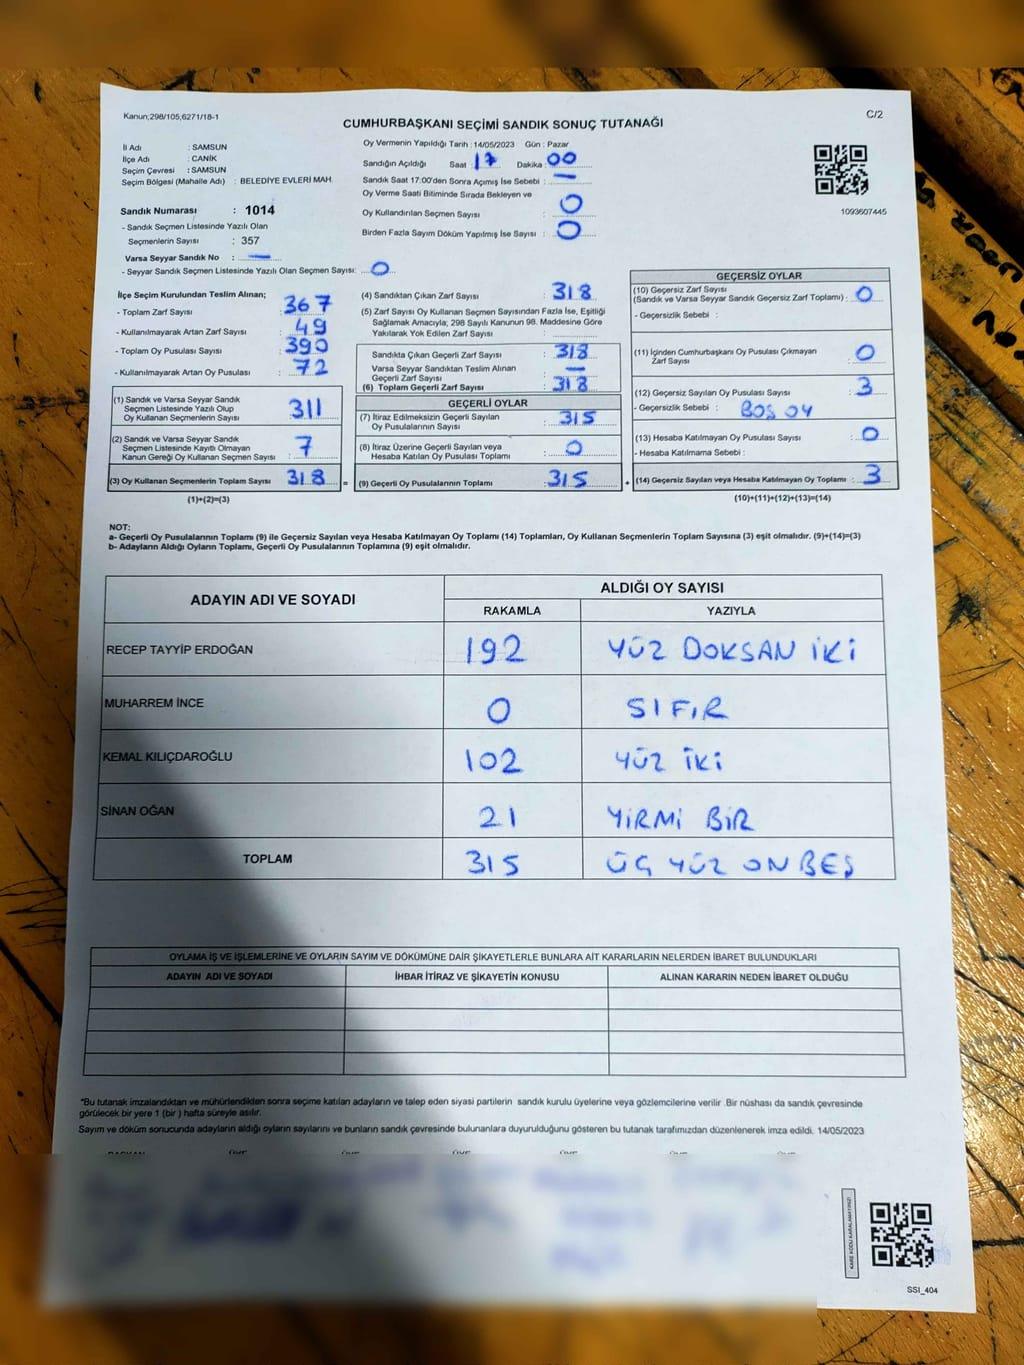 Kanun;298/105,6271/18-1
C/2
CUMHURBAŞKANI SEÇİMİ SANDIK SONUÇ TUTANAĞI
İl Adı : SAMSUN
İlçe Adı : CANİK
Seçim Çevresi : SAMSUN
Seçim Bölgesi (Mahalle Adı) : BELEDİYE EVLERİ MAH.
Sandık Numarası : 1014
- Sandık Seçmen Listesinde Yazılı Olan
Seçmenlerin Sayısı : 357
Varsa Seyyar Sandık No : —
- Seyyar Sandık Seçmen Listesinde Yazılı Olan Seçmen Sayısı: 0
Oy Vermenin Yapıldığı Tarih : 14/05/2023 Gün : Pazar
Sandığın Açıldığı Saat : 17 Dakika : 00
Sandık Saat 17:00'den Sonra Açımış İse Sebebi : —
Oy Verme Saati Bitiminde Sırada Bekleyen ve
Oy Kullandırılan Seçmen Sayısı : 0
Birden Fazla Sayım Döküm Yapılmış İse Sayısı : 0
1093607445
İlçe Seçim Kurulundan Teslim Alınan;
- Toplam Zarf Sayısı : 367
- Kullanılmayarak Artan Zarf Sayısı : 49
- Toplam Oy Pusulası Sayısı : 390
- Kullanılmayarak Artan Oy Pusulası : 72
(1) Sandık ve Varsa Seyyar Sandık
Seçmen Listesinde Yazılı Olup
Oy Kullanan Seçmenlerin Sayısı : 311
(2) Sandık ve Varsa Seyyar Sandık
Seçmen Listesinde Kayıtlı Olmayan
Kanun Gereği Oy Kullanan Seçmen Sayısı : 7
(3) Oy Kullanan Seçmenlerin Toplam Sayısı : 318 =
(1)+(2)=(3)
(4) Sandıktan Çıkan Zarf Sayısı : 318
(5) Zarf Sayısı Oy Kullanan Seçmen Sayısından Fazla İse, Eşitliği
Sağlamak Amacıyla; 298 Sayılı Kanunun 98. Maddesine Göre
Yakılarak Yok Edilen Zarf Sayısı :
Sandıkta Çıkan Geçerli Zarf Sayısı : 318
Varsa Seyyar Sandıktan Teslim Alınan
Geçerli Zarf Sayısı : —
(6) Toplam Geçerli Zarf Sayısı : 318
GEÇERLİ OYLAR
(7) İtiraz Edilmeksizin Geçerli Sayılan
Oy Pusulalarının Sayısı : 315
(8) İtiraz Üzerine Geçerli Sayılan veya
Hesaba Katılan Oy Pusulası Toplamı : 0
(9) Geçerli Oy Pusulalarının Toplamı : 315 +
GEÇERSİZ OYLAR
(10) Geçersiz Zarf Sayısı
(Sandık ve Varsa Seyyar Sandık Geçersiz Zarf Toplamı) : 0
- Geçersizlik Sebebi :
(11) İçinden Cumhurbaşkanı Oy Pusulası Çıkmayan
Zarf Sayısı : 0
(12) Geçersiz Sayılan Oy Pusulası Sayısı : 3
- Geçersizlik Sebebi : BOŞ OY
(13) Hesaba Katılmayan Oy Pusulası Sayısı : 0
- Hesaba Katılmama Sebebi :
(14) Geçersiz Sayılan veya Hesaba Katılmayan Oy Toplamı : 3
(10)+(11)+(12)+(13)=(14)
NOT:
a- Geçerli Oy Pusulalarının Toplamı (9) ile Geçersiz Sayılan veya Hesaba Katılmayan Oy Toplamı (14) Toplamları, Oy Kullanan Seçmenlerin Toplam Sayısına (3) eşit olmalıdır. (9)+(14)=(3)
b- Adayların Aldığı Oyların Toplamı, Geçerli Oy Pusulalarının Toplamına (9) eşit olmalıdır.
ADAYIN ADI VE SOYADI
ALDIĞI OY SAYISI
RAKAMLA YAZIYLA
RECEP TAYYİP ERDOĞAN 192 YÜZ DOKSAN İKİ
MUHARREM İNCE 0 SIFIR
KEMAL KILIÇDAROĞLU 102 YÜZ İKİ
SİNAN OĞAN 21 YİRMİ BİR
TOPLAM 315 ÜÇ YÜZ ON BEŞ
OYLAMA İŞ VE İŞLEMLERİNE VE OYLARIN SAYIM VE DÖKÜMÜNE DAİR ŞİKAYETLERLE BUNLARA AİT KARARLARIN NELERDEN İBARET BULUNDUKLARI
ADAYIN ADI VE SOYADI İHBAR İTİRAZ VE ŞİKAYETİN KONUSU ALINAN KARARIN NEDEN İBARET OLDUĞU
*Bu tutanak imzalandıktan ve mühürlendikten sonra seçime katılan adayların ve talep eden siyasi partilerin sandık kurulu üyelerine veya gözlemcilerine verilir .Bir nüshası da sandık çevresinde
görülecek bir yere 1 (bir ) hafta süreyle asılır.
Sayım ve döküm sonucunda adayların aldığı oyların sayılarını ve bunların sandık çevresinde bulunanlara duyurulduğunu gösteren bu tutanak tarafımızdan düzenlenerek imza edildi. 14/05/2023
KARE KODU KARALAMAYINIZ!
SSI_404